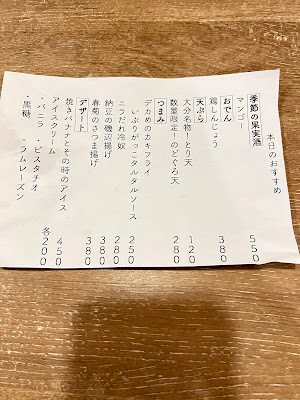 本日のおすすめ
季節の果実酒
マンゴー 550
おでん
鶏しんじょう 380
天ぷら
大分名物!とり天 120
数量限定!のどぐろ天 280
つまみ
デカめのカキフライ
いぶりがっこタルタルソース 250
ニラだれ冷奴 280
納豆の磯辺揚げ 380
春菊のさつま揚げ 380
デザート
焼きバナナとその時のアイス 450
アイスクリーム 各200
・バニラ ・ピスタチオ
・黒糖 ・ラムレーズン